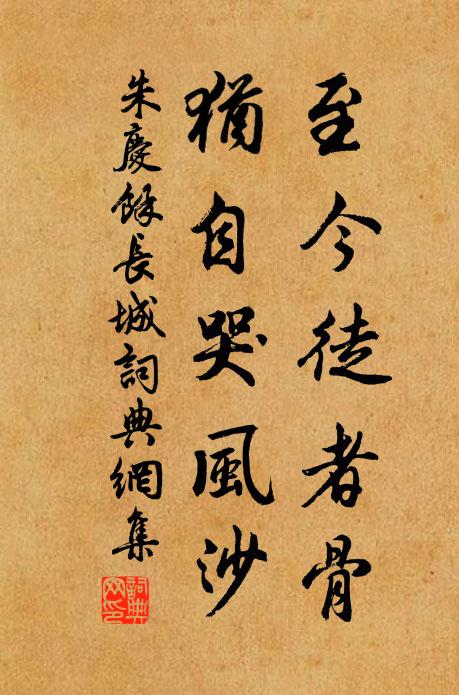 至今徒者骨
猶自哭風沙
朱慶餘長城詞典網集
詞典網印